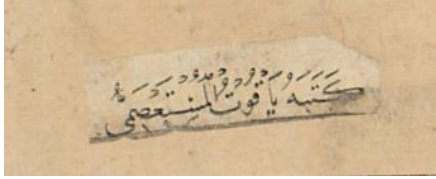 كَتَبَهُ يَاقُوتُ الْمُسْتَعْصِمِيُّ